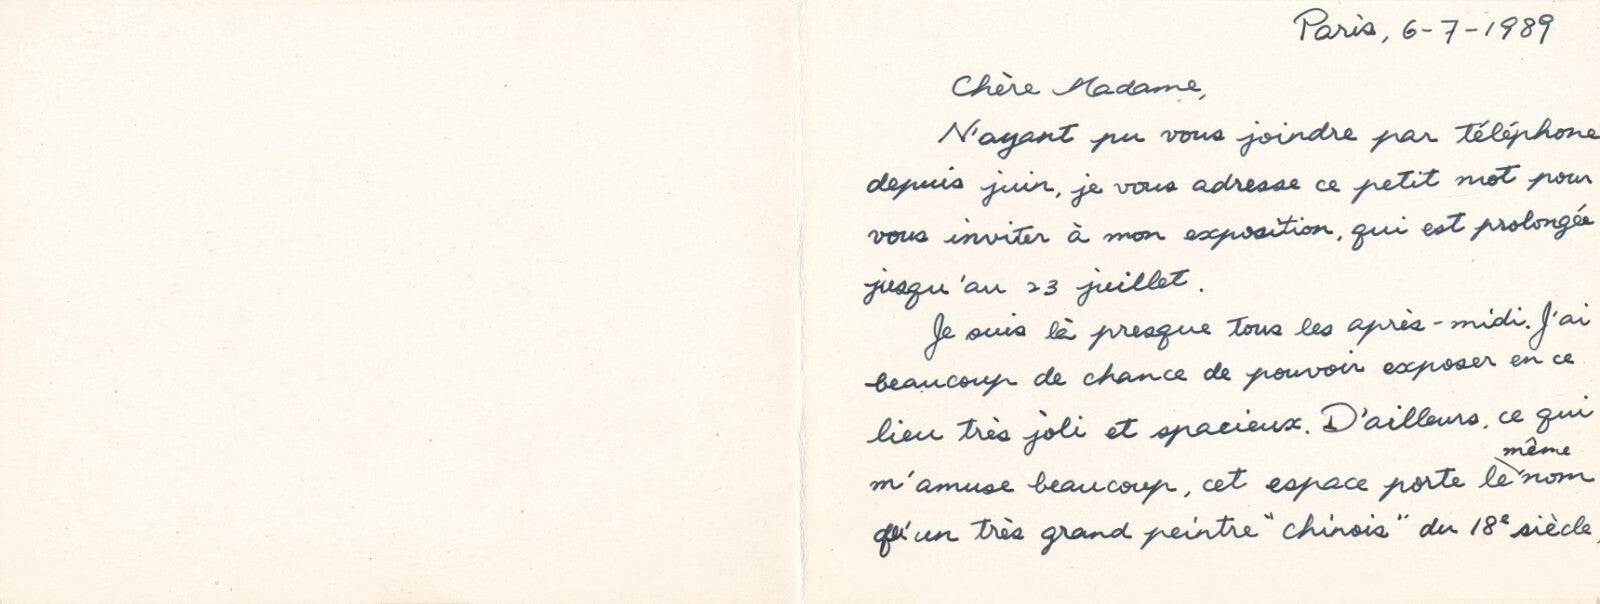 Paris, 6-7-1989
Chère Madame,
N'ayant pu vous joindre par téléphone
depuis juin, je vous adresse ce petit mot pour
vous inviter à mon exposition, qui est prolongée
jusqu'au 23 juillet.
Je suis là presque tous les après-midi. J'ai
beaucoup de chance de pouvoir exposer en ce
lieu très joli et spacieux. D'ailleurs, ce qui
m'amuse beaucoup, cet espace porte le même nom
qu'un très grand peintre "chinois" du 18e siècle,